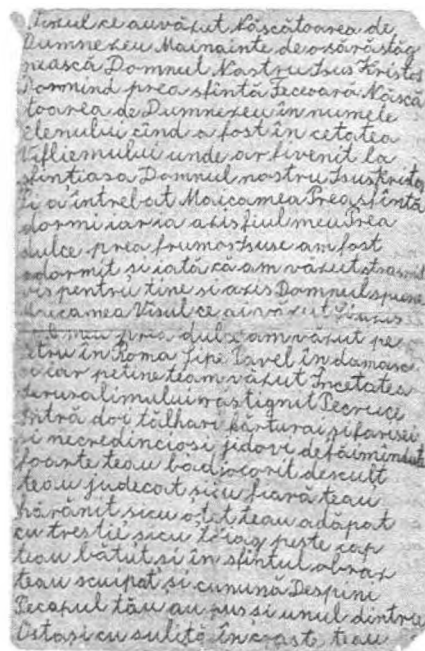 Visul ce au văzut Născătoarea de
Dumnezeu Mainainte de osără stăg
nească Domnul Nostru Isus Kristos
Dormind prea sfîntă Feceoară Născă
toarea de Dumnezeu în numele
elenului cînd a fost în cetatea
Vifliemului unde ar fivenit la
sfintiasa Domnul nostru Isus Kristos
Și a întrebat Maicamea Prea sfîntă
dormi iar ia azis fiul meu Prea
dulce prea frumos Isuse am fost
adormit si iată că am văzut
vis pentru tine si azis Domnul spune
Maicamea Visul ce ai văzut
meu prea dulce am văzut pe
Petru în Roma Șipe Pavel în damasc
iar petine team văzut Încetatea
Ierusalimului rastignit Pecruce
Intră doi tălhari si farisei
si necredinciosi jidovi defăimîndute
foarte teau descult
teau judecat sicu fiară teau
hărănit sicu otăt teau adăpat
cu trestie sicu toiag peste cap
teau bătut si în sfîntul obraz
teau scuipat si cunună Despini
Pecapul tău au pus si unul dintre
Ostasi cu suliță în coaste teau